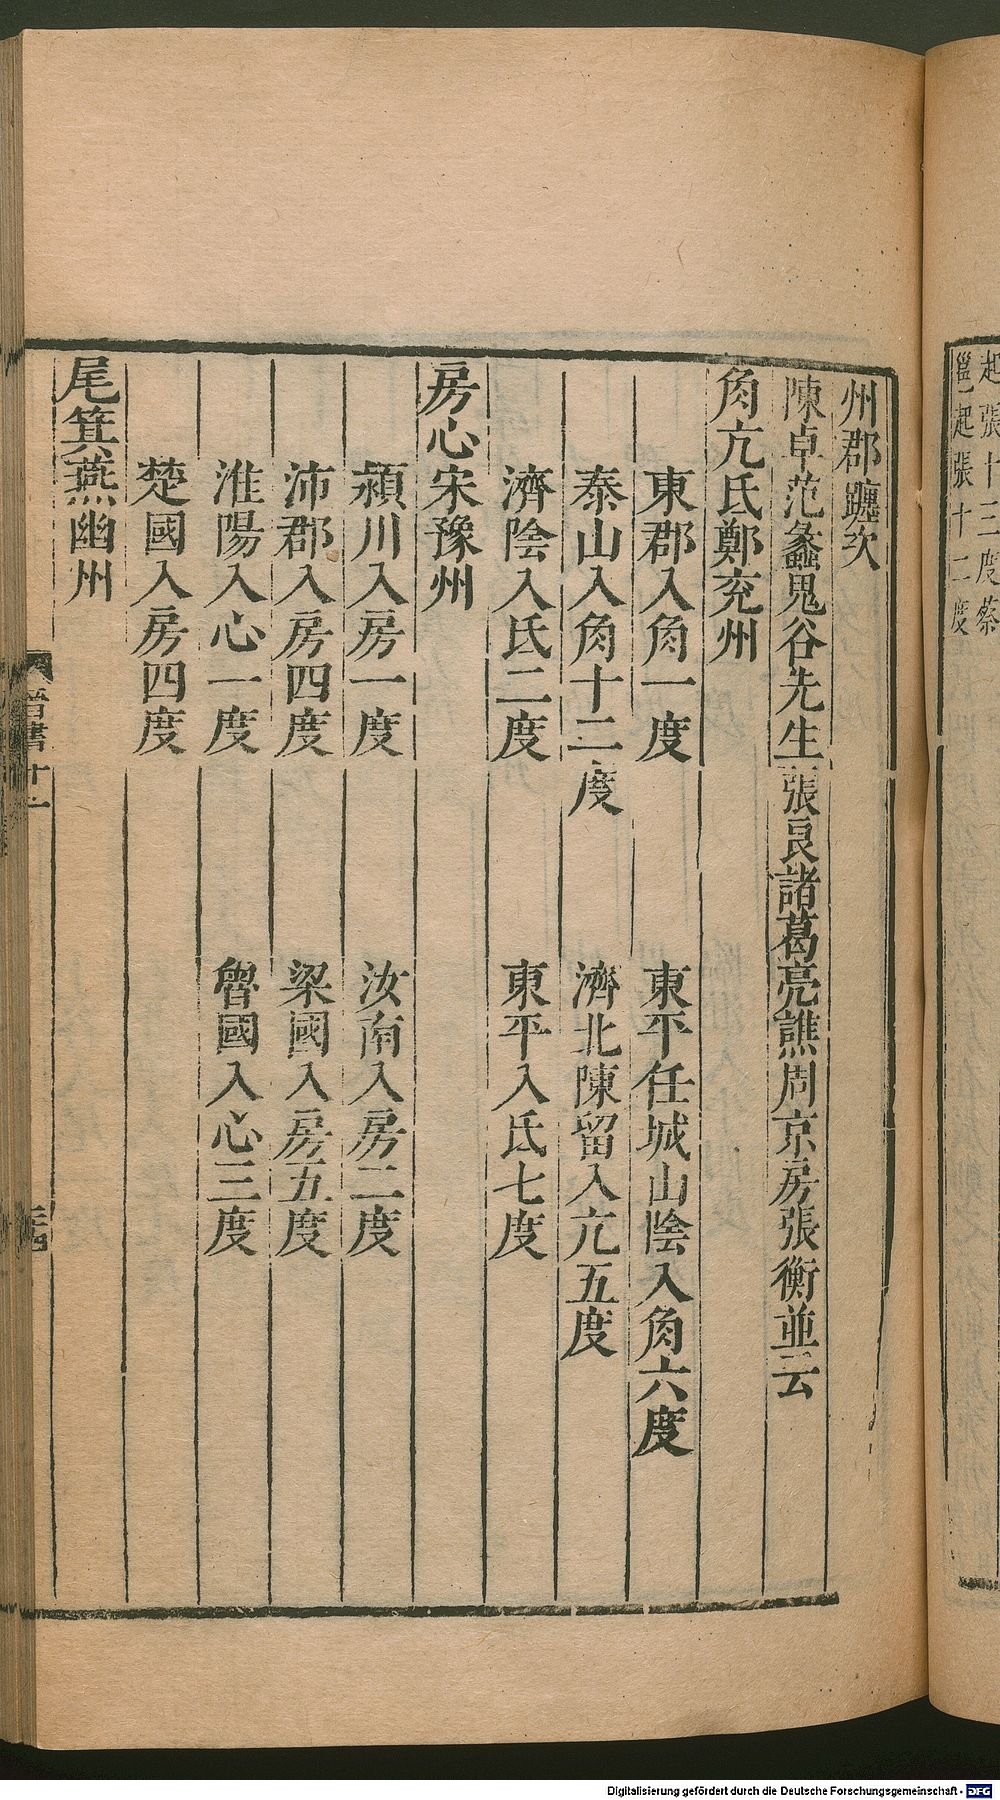 起張十三度蔡
邕起張十二度
州郡躔次
陳卓范蠡鬼谷先生張良諸葛亮譙周京房張衡並云
角亢氐鄭兖州
東郡入角一度 東平任城山陰入角六度
泰山入角十二度 濟北陳留入亢五度
濟陰入氐二度 東平入氐七度
房心宋豫州
潁川入房一度 汝南入房二度
沛郡入房四度 梁國入房五度
淮陽入心一度 魯國入心三度
楚國入房四度
尾箕燕幽州
晉書十一
Digitalisierung gefördert durch die Deutsche Forschungsgemeinschaft - DFG